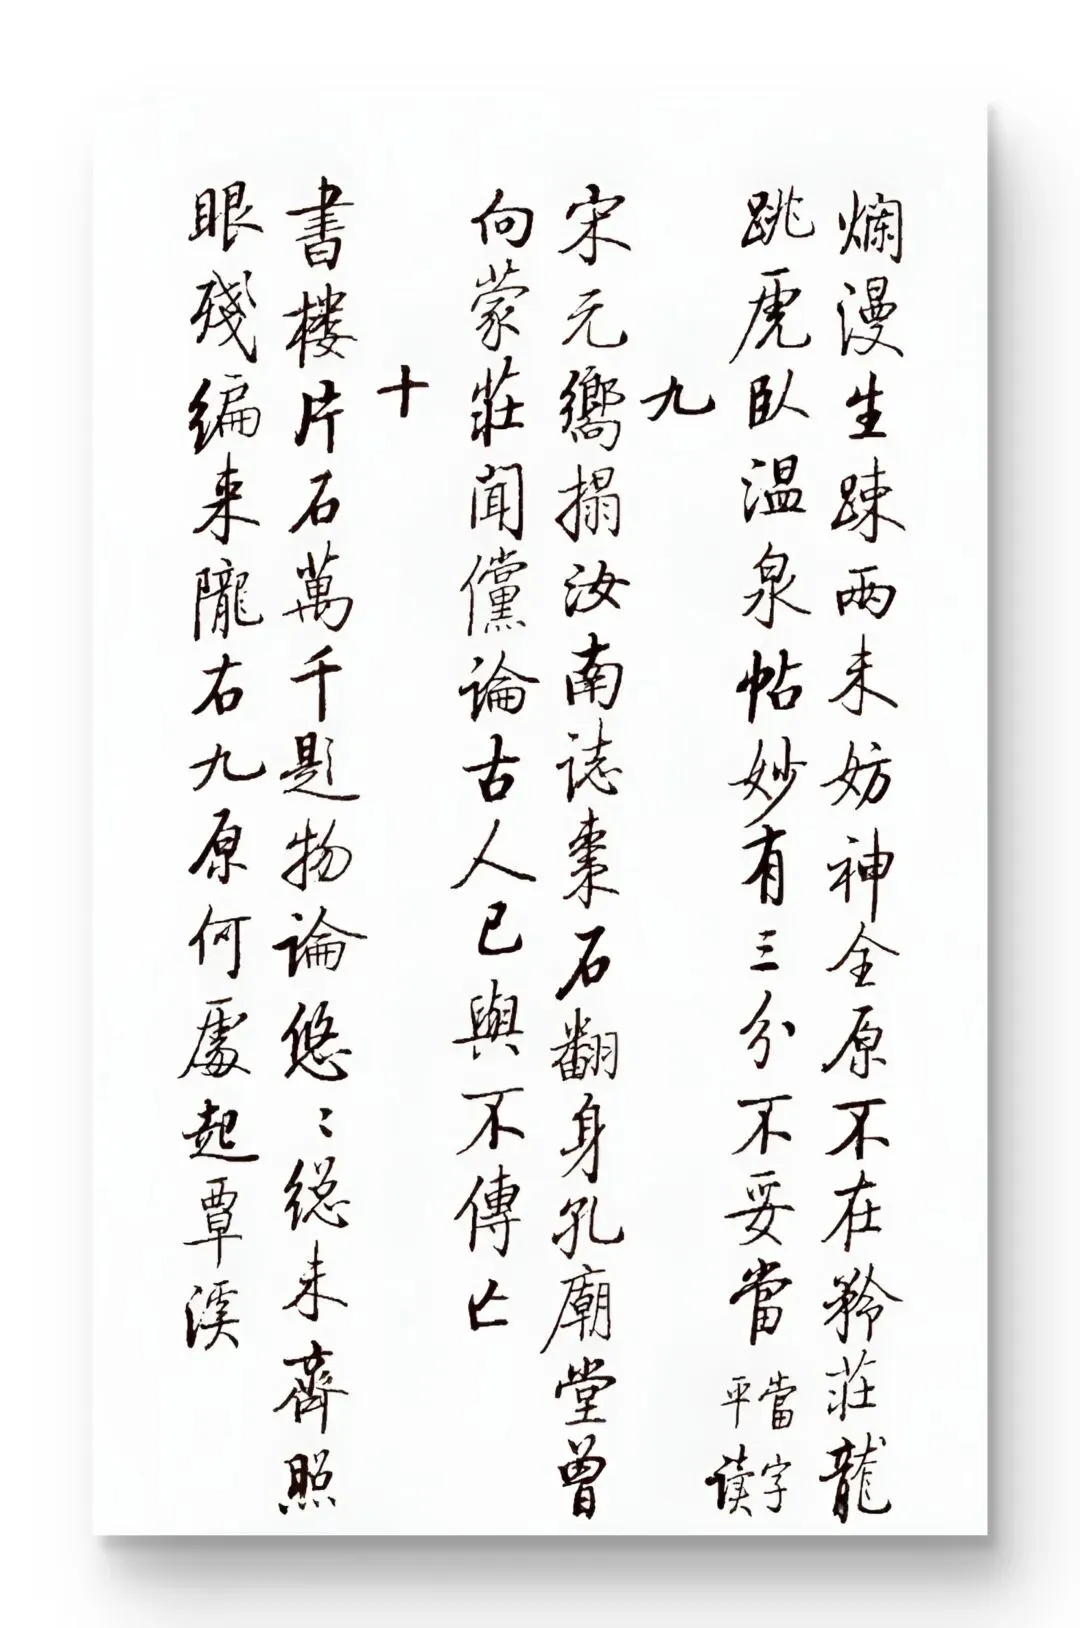 爛漫生疎兩未妨神全原不在矜莊龍
跳虎臥温泉帖妙有三分不妥當當字平读
九
宋元嚮搨汝南誌棗石翻身孔廟堂曾
向蒙莊聞儻論古人已與不傳亡
十
書楼片石萬千題物論悠〻総未齊照
眼殘编来隴右九原何處起覃溪